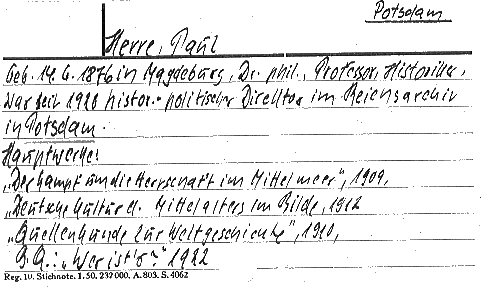 Potsdam
Herre, Paul
Geb. 14. 6. 1876 in Magdeburg, Dr. phil., Professor, Historiker,
war seit 1920 histor.-politischer Direktor im Reichsarchiv
in Potsdam.
Hauptwerke:
„Der Kampf um die Herrschaft im Mittelmeer", 1909,
„Deutsche Kultur d. Mittelalters im Bilde, 1912
„Quellenkunde zur Weltgeschichte", 1910,
„Wer ist's?" 1922
Reg. 10. Stichnote. I. 50. 232 000. A. 803. S. 4062